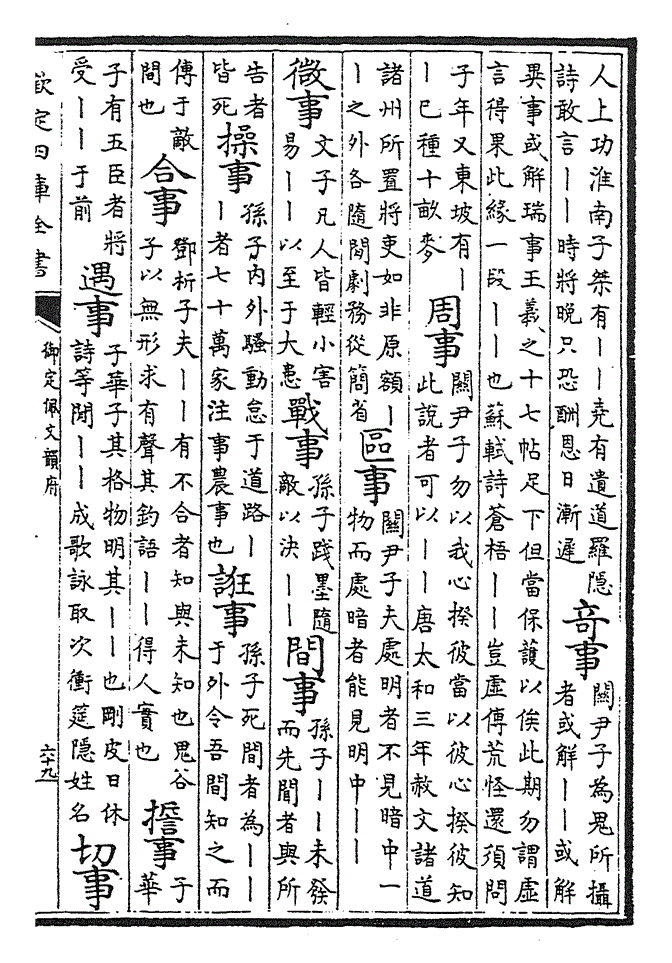 人上功淮南子桀有——堯有遺道羅隱
詩敢言——時將晚只恐酬恩日漸遲
奇事
關尹子為鬼所攝
者或解——或解
異事或解瑞事王羲之十七帖足下但當保護以俟此期勿謂虛
言得果此緣一段——也蘇軾詩蒼梧——豈虛傳荒怪還須問
子年又東坡有—
—已種十畝麥
周事
關尹子勿以我心揆彼當以彼心揆彼知
此說者可以——唐太和三年赦文諸道
諸州所置將吏如非原額—
—之外各隨閒劇務從簡省
區事
關尹子夫處明者不見暗中一
物而處暗者能見明中——
微事
文子凡人皆輕小害
易——以至于大患
戰事
孫子踐墨隨
敵以決——
間事
孫子——未發
而先聞者與所
告者
皆死
操事
孫子內外騷動怠于道路—
—者七十萬家注事農事也
誑事
孫子死間者為——
于外令吾間知之而
傳于敵
間也
合事
鄧析子夫——有不合者知與未知也鬼谷
子以無形求有聲其釣語——得人實也
事
子
華
子有五臣者將
受——于前
遇事
子華子其格物明其——也剛皮日休
詩等閒——成歌詠取次衝筵隱姓名
切事
欽定四庫全書
御定佩文韻府
六十九